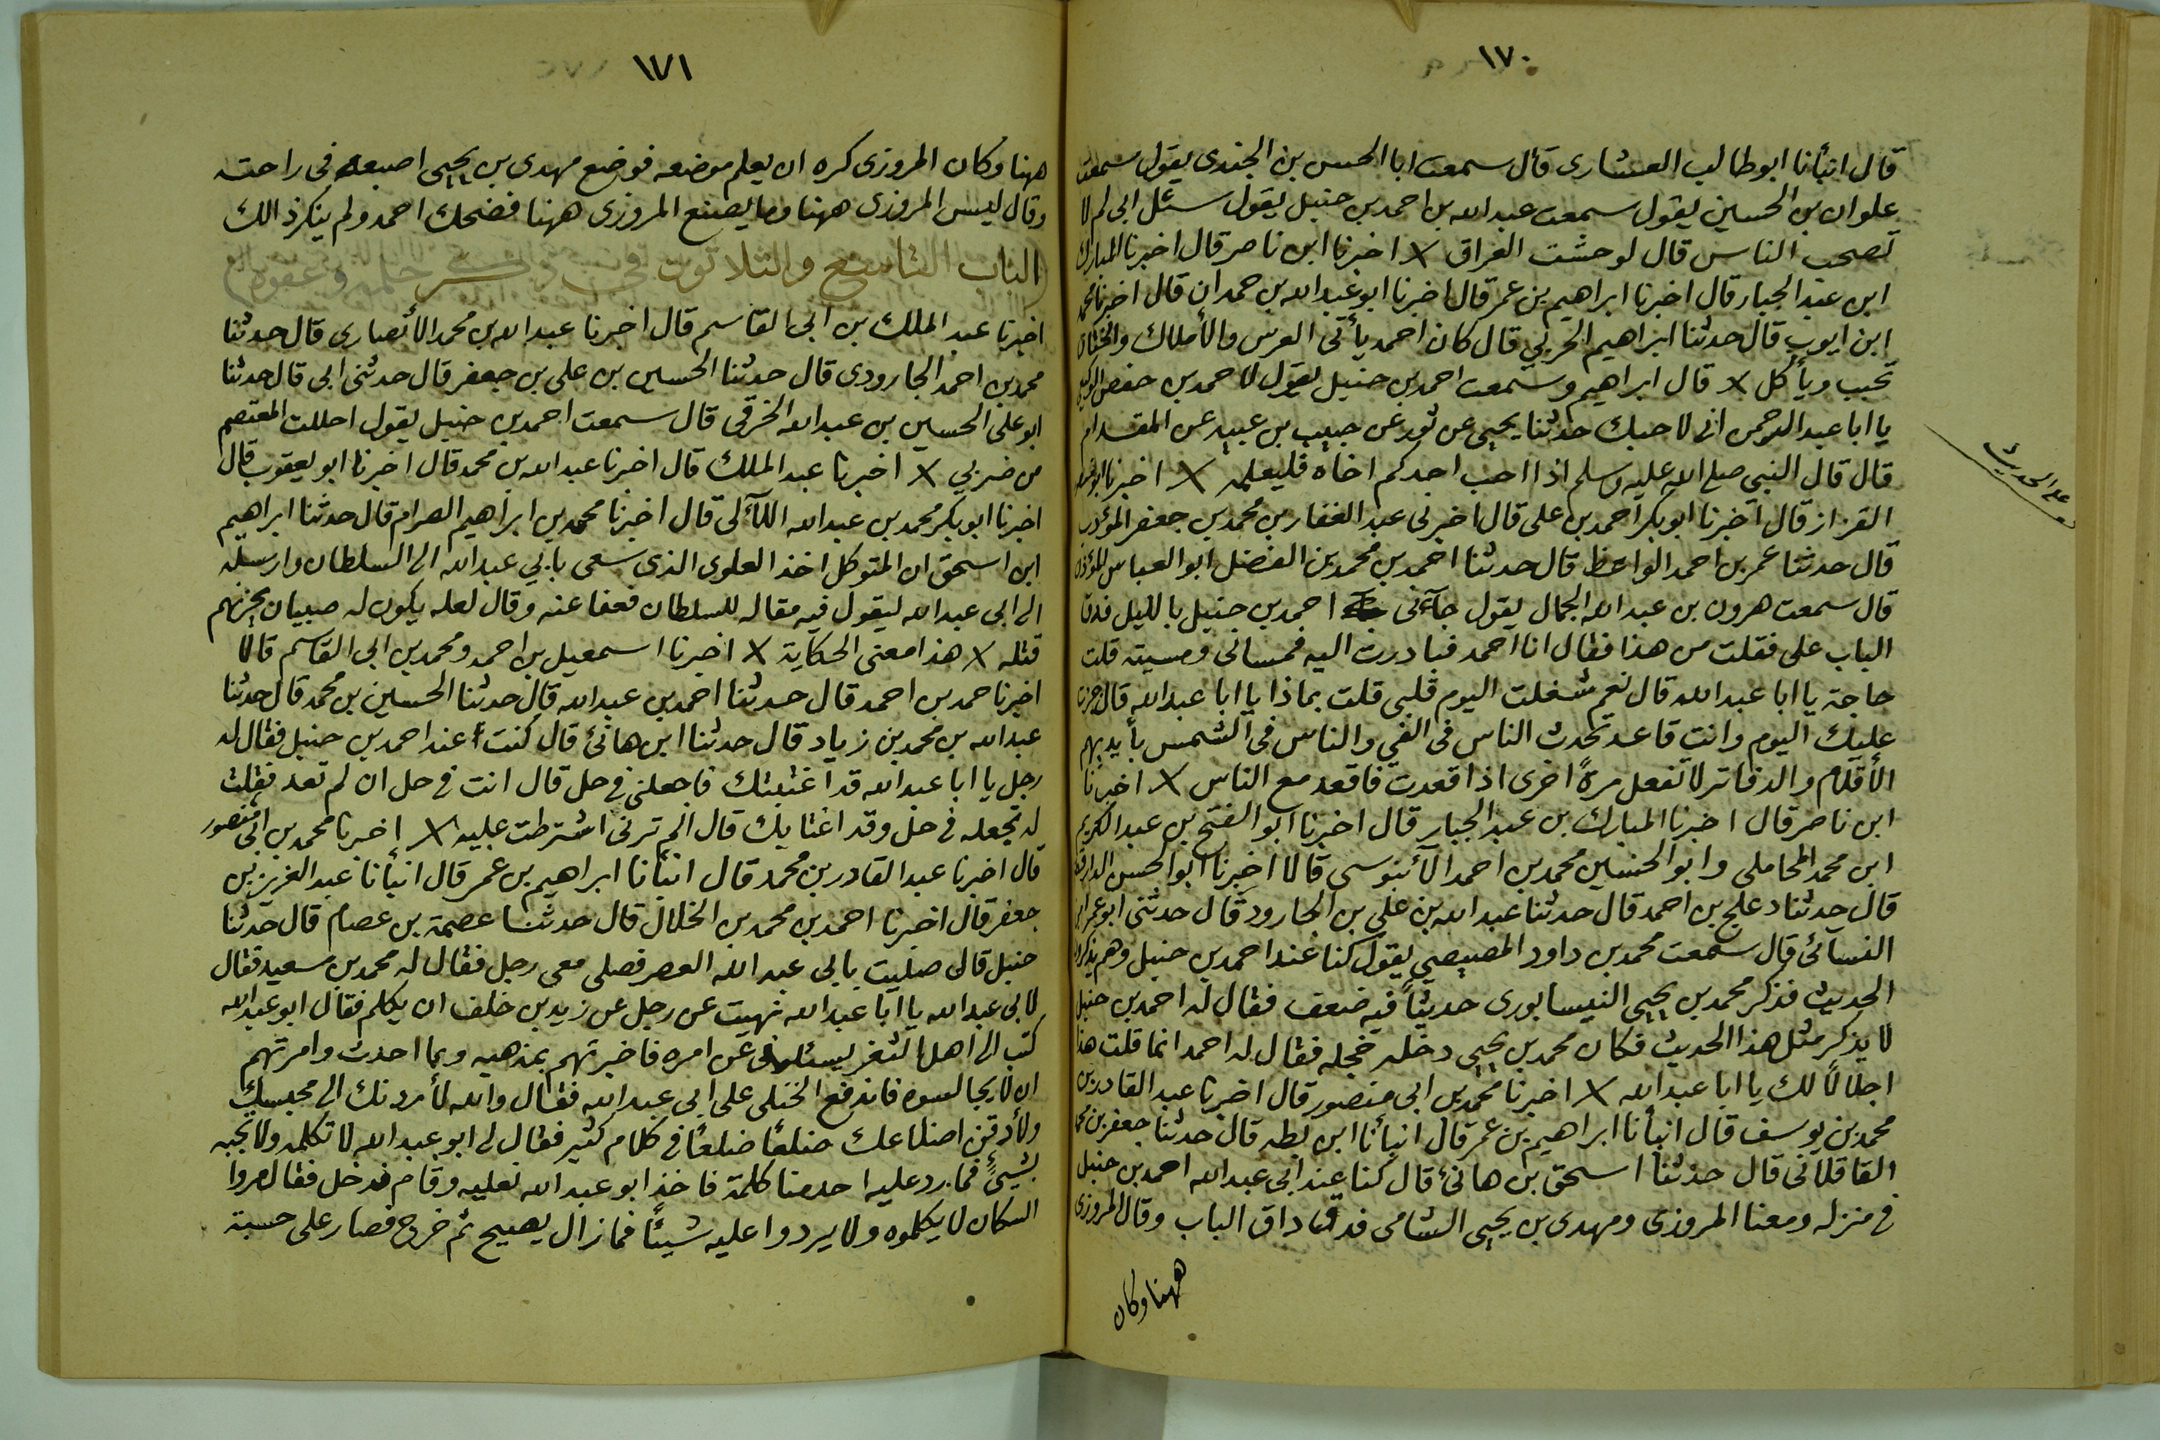 ١٧٠
قال انبأنا ابو طالب العشارى قال سمعت ابا الحسن بن الجندى يقول سمعت
علوان بن الحسين يقول سمعت عبد الله بن احمد بن حنبل يقول سئل ابى لم لا
تصحب الناس قال لوحشت الفراق × اخبرنا ابن ناصر قال اخبرنا المبارك
ابن عبد الجبار قال اخبرنا ابراهيم بن عمر قال اخبرنا ابو عبد الله بن حمدان قال اخبرنا محمد
ابن ايوب قال حدثنا ابراهيم الحربي قال كان احمد يأتى العرس والأملاك والختان
تجيب ويأكل × قال ابراهيم وسمعت احمد بن حنبل يقول لاحمد بن حفص الوكيعى
يا ابا عبد الرحمن انى لاحبك حدثنا يحيى عن ثور عن حبيب بن عبيد عن المقدام
قال قال النبى صلى الله عليه وسلم اذا احب احدكم اخاه فليعلمه × اخبرنا ابو منصور
القزاز قال اخبرنا ابو بكر احمد بن على قال اخبرنى عبد الغفار بن محمد بن جعفر المؤدب
قال حدثنا عمر بن احمد الواعظ قال حدثنا احمد بن محمد بن الفضل ابو العباس المؤذن
قال سمعت هرون بن عبد الله الجمال يقول جآءنى احمد بن حنبل بالليل فدق
الباب على فقلت من هذا فقال انا احمد فبادرت اليه فمسانى ومسيته قلت
حاجة يا ابا عبد الله قال نعم شغلت اليوم قلبى قلت بماذا يا ابا عبد الله قال جزت
عليك اليوم وانت قاعد تحدث الناس فى الفي والناس فى الشمس بأيديهم
الأقلام والدفاتر لا تفعل مرةً اخرى اذا قعدت فاقعد مع الناس × اخبرنا
ابن ناصر قال اخبرنا المبارك بن عبد الجبار قال اخبرنا ابو الفتح بن عبد الكريم
ابن محمد المحاملى وابو الحسين محمد بن احمد الآبنوسى قالا اخبرنا ابو الحسن الدارقطنى
قال حدثنا دعلج بن احمد قال حدثنا عبد الله بن على بن الجارود قال حدثنى ابو عمران
النسائى قال سمعت محمد بن داود المصيصي يقول كنا عند احمد بن حنبل وهم يذكرون
الحديث فذكر محمد بن يحيى النيسابورى حديثاً فيه ضعف فقال له احمد بن حنبل
لا يذكر مثل هذا الحديث فكان محمد بن يحيى دخله خجله فقال له احمد انما قلت هذا
اجلالًا لك يا ابا عبد الله × اخبرنا محمد بن ابى منصور قال اخبرنا عبد القادر بن
محمد بن يوسف قال انبأنا ابراهيم بن عمر قال انبأنا ابن بطه قال حدثنا جعفر بن محمد
القافلانى قال حدثنا اسحق بن هانئ قال كنا عند ابى عبد الله احمد بن حنبل
فى منزله ومعنا المروزى ومهدى بن يحيى الشامى فدق داق الباب وقال المروزى
ههنا وكان
على الحديث
١٧١
ههنا وكان المروزى كره ان يعلم موضعه فوضع مهدى بن يحيى اصبعه فى راحته
وقال ليس المروزى ههنا وما يصنع المروزى ههنا فضحك احمد ولم ينكر ذالك
الباب التاسع والثلاثون فى ذكر حلمه وعفوه
اخبرنا عبد الملك بن ابى القاسم قال اخبرنا عبد الله بن محمد الأنصارى قال حدثنا
محمد بن احمد الجارودى قال حدثنا الحسين بن على بن جعفر قال حدثنى ابى قال حدثنا
ابو على الحسين بن عبد الله الخرقى قال سمعت احمد بن حنبل يقول احللت المعتصم
من ضربي × اخبرنا عبد الملك قال اخبرنا عبد الله بن محمد قال اخبرنا ابو يعقوب قال
اخبرنا ابو بكر محمد بن عبد الله اللآلى قال اخبرنا محمد بن ابراهيم الصرام قال حدثنا ابراهيم
ابن اسحق ان المتوكل اخذ العلوى الذى سعى بابي عبد الله الى السلطان وارسله
الى ابى عبد الله ليقول فيه مقاله للسلطان فعفا عنه وقال لعله يكون له صبيان يحزنهم
قتله × هذا معنى الحكاية × اخبرنا اسمعيل بن احمد ومحمد بن ابى القاسم قالا
اخبرنا حمد بن احمد قال حدثنا احمد بن عبد الله قال حدثنا الحسين بن محمد قال حدثنا
عبد الله بن محمد بن زياد قال حدثنا ابن هانئ قال كنت عند احمد بن حنبل فقال له
رجل يا ابا عبد الله قد اغتبتك فاجعلنى في حل قال انت فى حل ان لم تعد فقلت
له تجعله فى حل وقد اغتابك قال الم ترنى اشترطت عليه × اخبرنا محمد بن ابى منصور
قال اخبرنا عبد القادر بن محمد قال انبأنا ابراهيم بن عمر قال انبأنا عبد العزيز بن
جعفر قال اخبرنا احمد بن محمد بن الخلال قال حدثنا عصمة بن عصام قال حدثنا
حنبل قال صليت بابى عبد الله العصر فصلى معى رجل فقال له محمد بن سعيد فقال
لابى عبد الله يا ابا عبد الله نهيت عن رجل عن زيد بن خلف ان يكلم فقال ابو عبد الله
كتب الى اهل الثغر يسئلونى عن امره فاخبرتهم بمذهبه وبما احدث وامرتهم
ان لا يجالسوه فاندفع الختلى على ابى عبد الله فقال والله لأردنك الى محبسك
ولأدقن اضلاعك ضلعًا ضلعًا فى كلام كثير فقال لى ابو عبد الله لا تكلمه ولا تجبه
بشيئ فما رد عليه احد منا كلمة فاخذ ابو عبد الله نعليه وقام فدخل فقال مروا
السكان لا يكلموه ولا يردوا عليه شيئًا فما زال يصيح ثم خرج فصار على حسبة